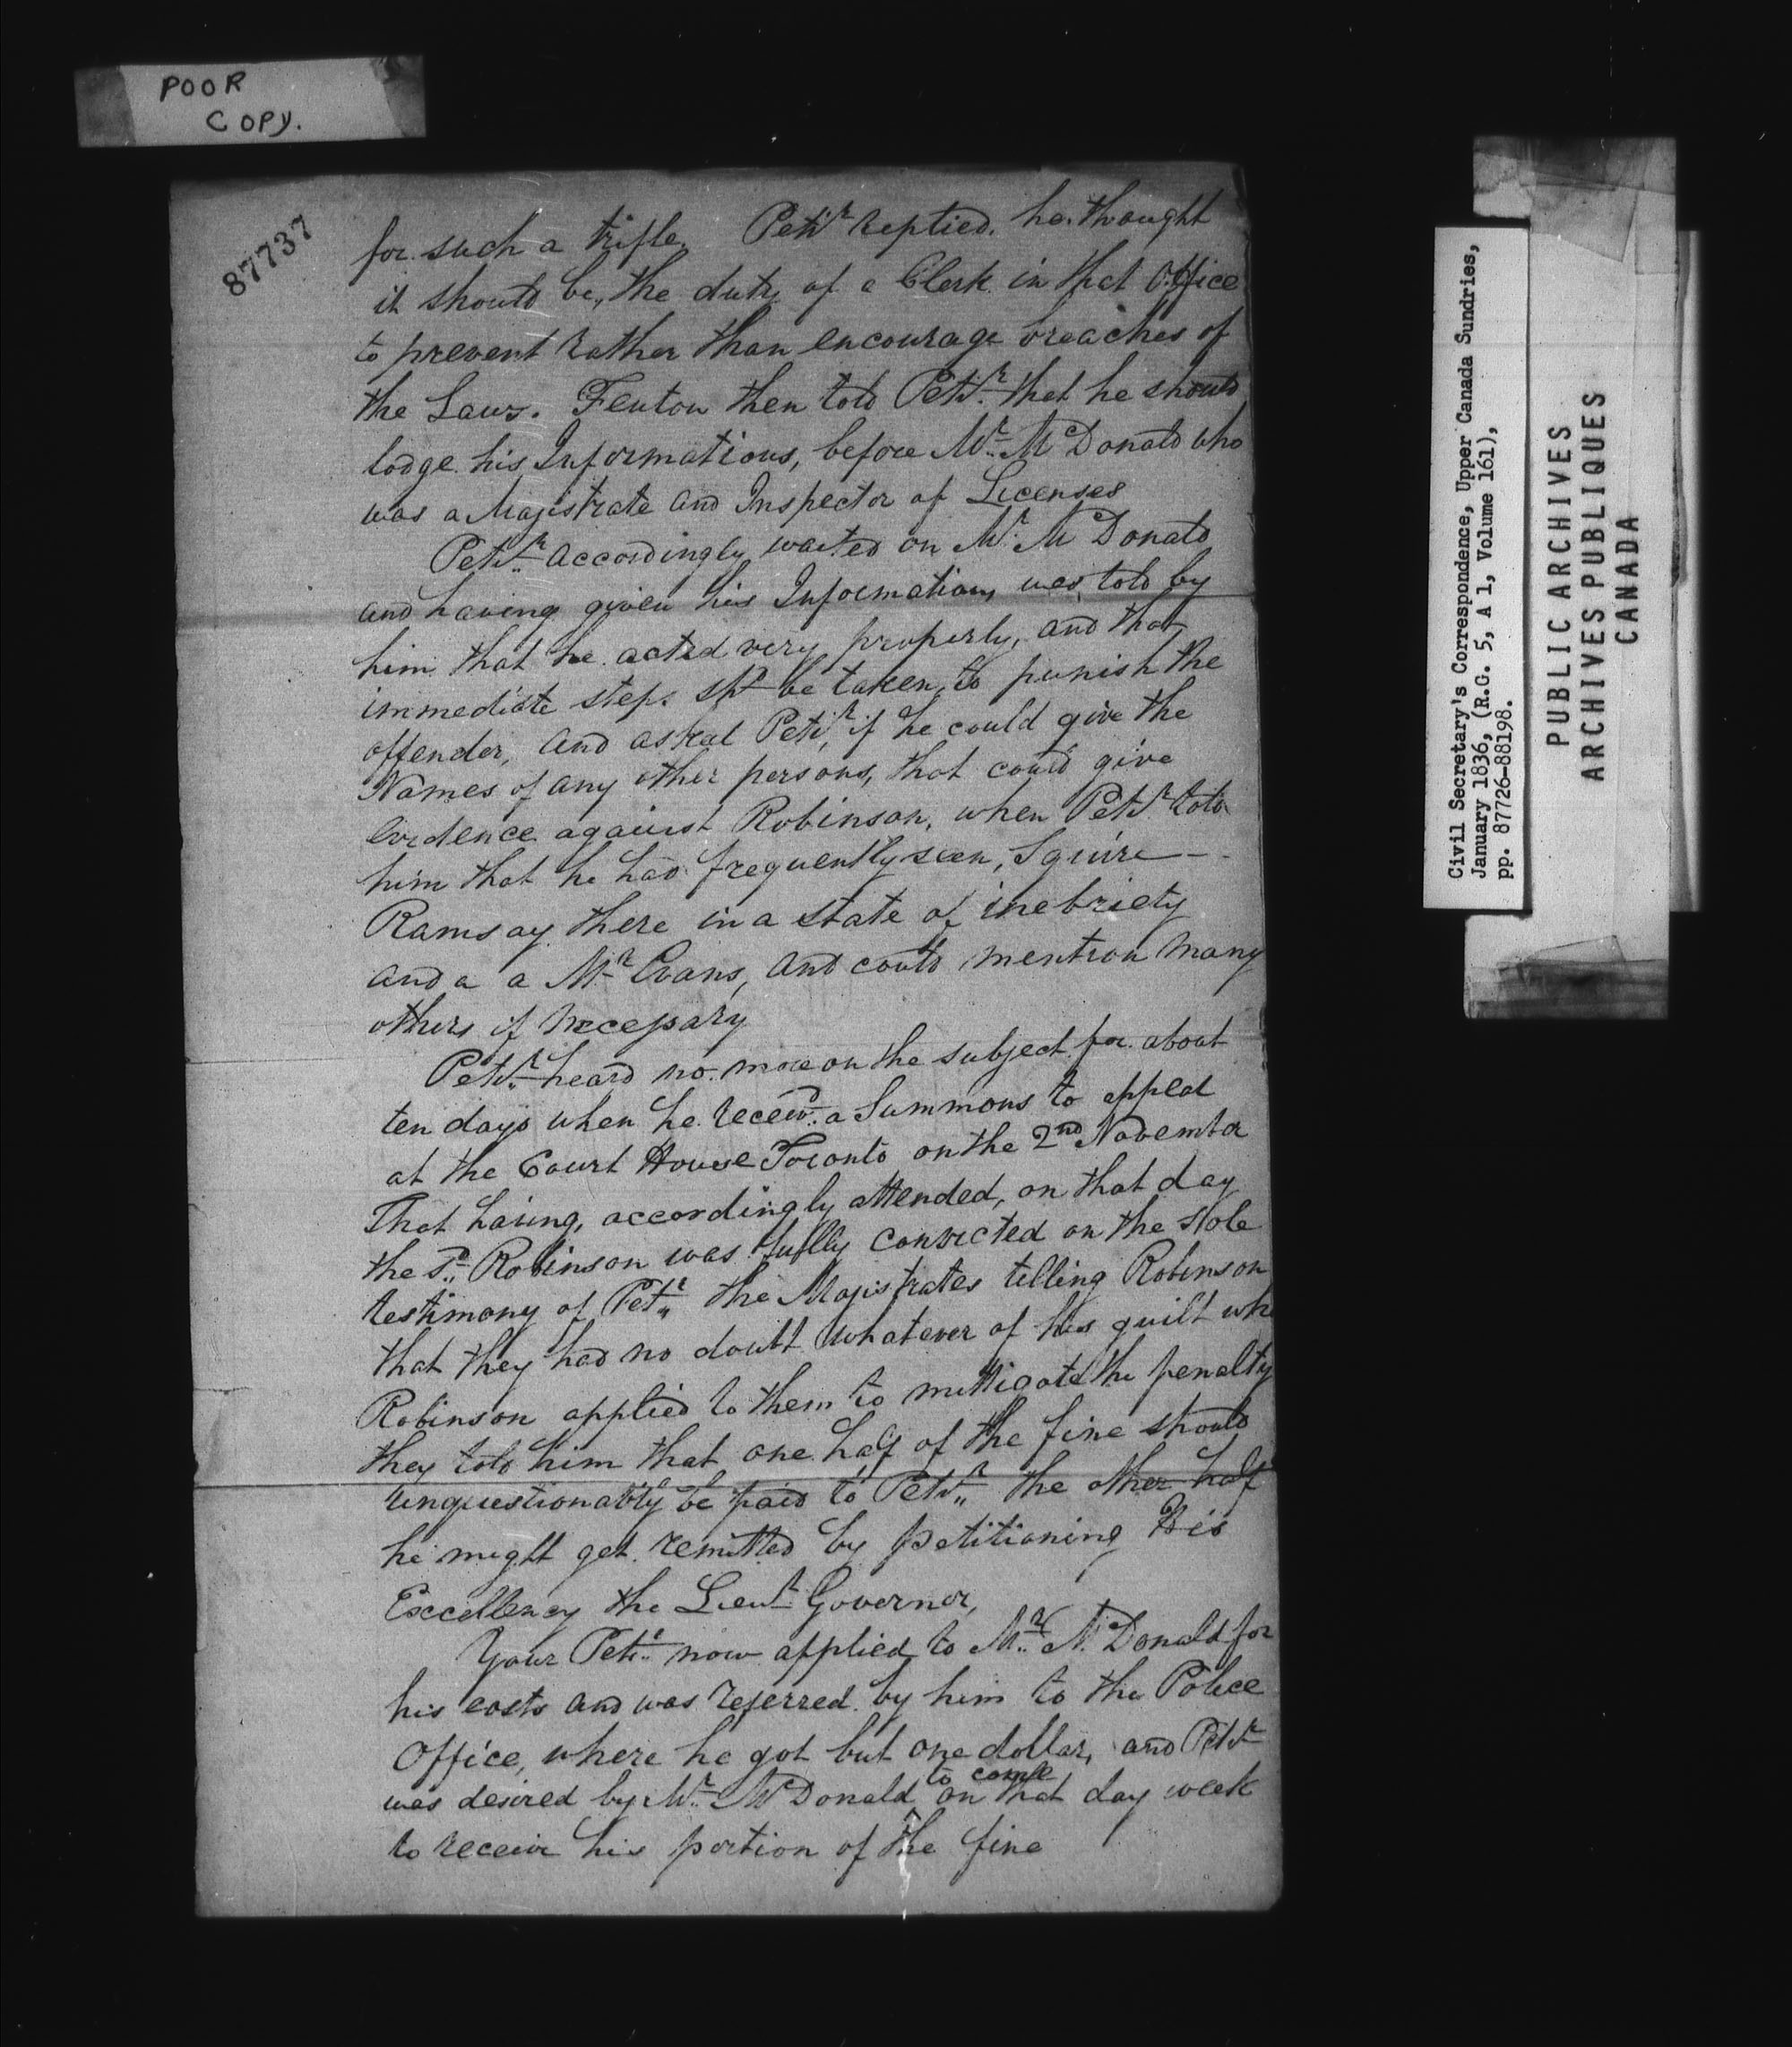 POOR
COPY.
87737
for such a trifle. Petr. replied. he thought
it should be, the duty of a Clerk in that Office
to prevent rather than encourage breaches of
the Laws. Fenton then told Petr. that he should
lodge his Informations, before Mr. McDonald who
was a Magistrate and Inspector of Licenses
Petr. accordingly waited on Mr. McDonald
and having given his Information, was told by
him that he acted very properly, and that
immediate steps shd be taken, to punish the
offender, and asked Petr. if he could give the
Names of any other persons, that could give
evidence against Robinson, when Petr. told
him that he had frequently seen, Squire
Ramsay there in a state of inebriety
and a a Mr. Evans, and could mention many
others if necessary
Petr. heard no more on the subject for about
ten days when he receivd. a Summons to appear
at the Court House Toronto on the 2nd November
That having, accordingly attended, on that day
the sd. Robinson was fully convicted on the sole
testimony of Petr. the Magistrates telling Robinson
that they had no doubt whatever of his guilt wh
Robinson applied to them to mittigate the penalty
they told him that one half of the fine should
unquestionably be paid to Petr. the other half
he might get remitted by petitioning His
Excellency the Lieut. Governor,
Your Petr. now applied to Mr. McDonald for
his costs and was referred by him to the Police
Office, where he got but one dollar, and Petr.
was desired by Mr. McDonald to come on that day week
to receive his portion of the fine
Civil Secretary's Correspondence, Upper Canada Sundries,
January 1836, (R.G. 5, A 1, Volume 161),
pp. 87726-88198.
PUBLIC ARCHIVES
ARCHIVES PUBLIQUES
CANADA